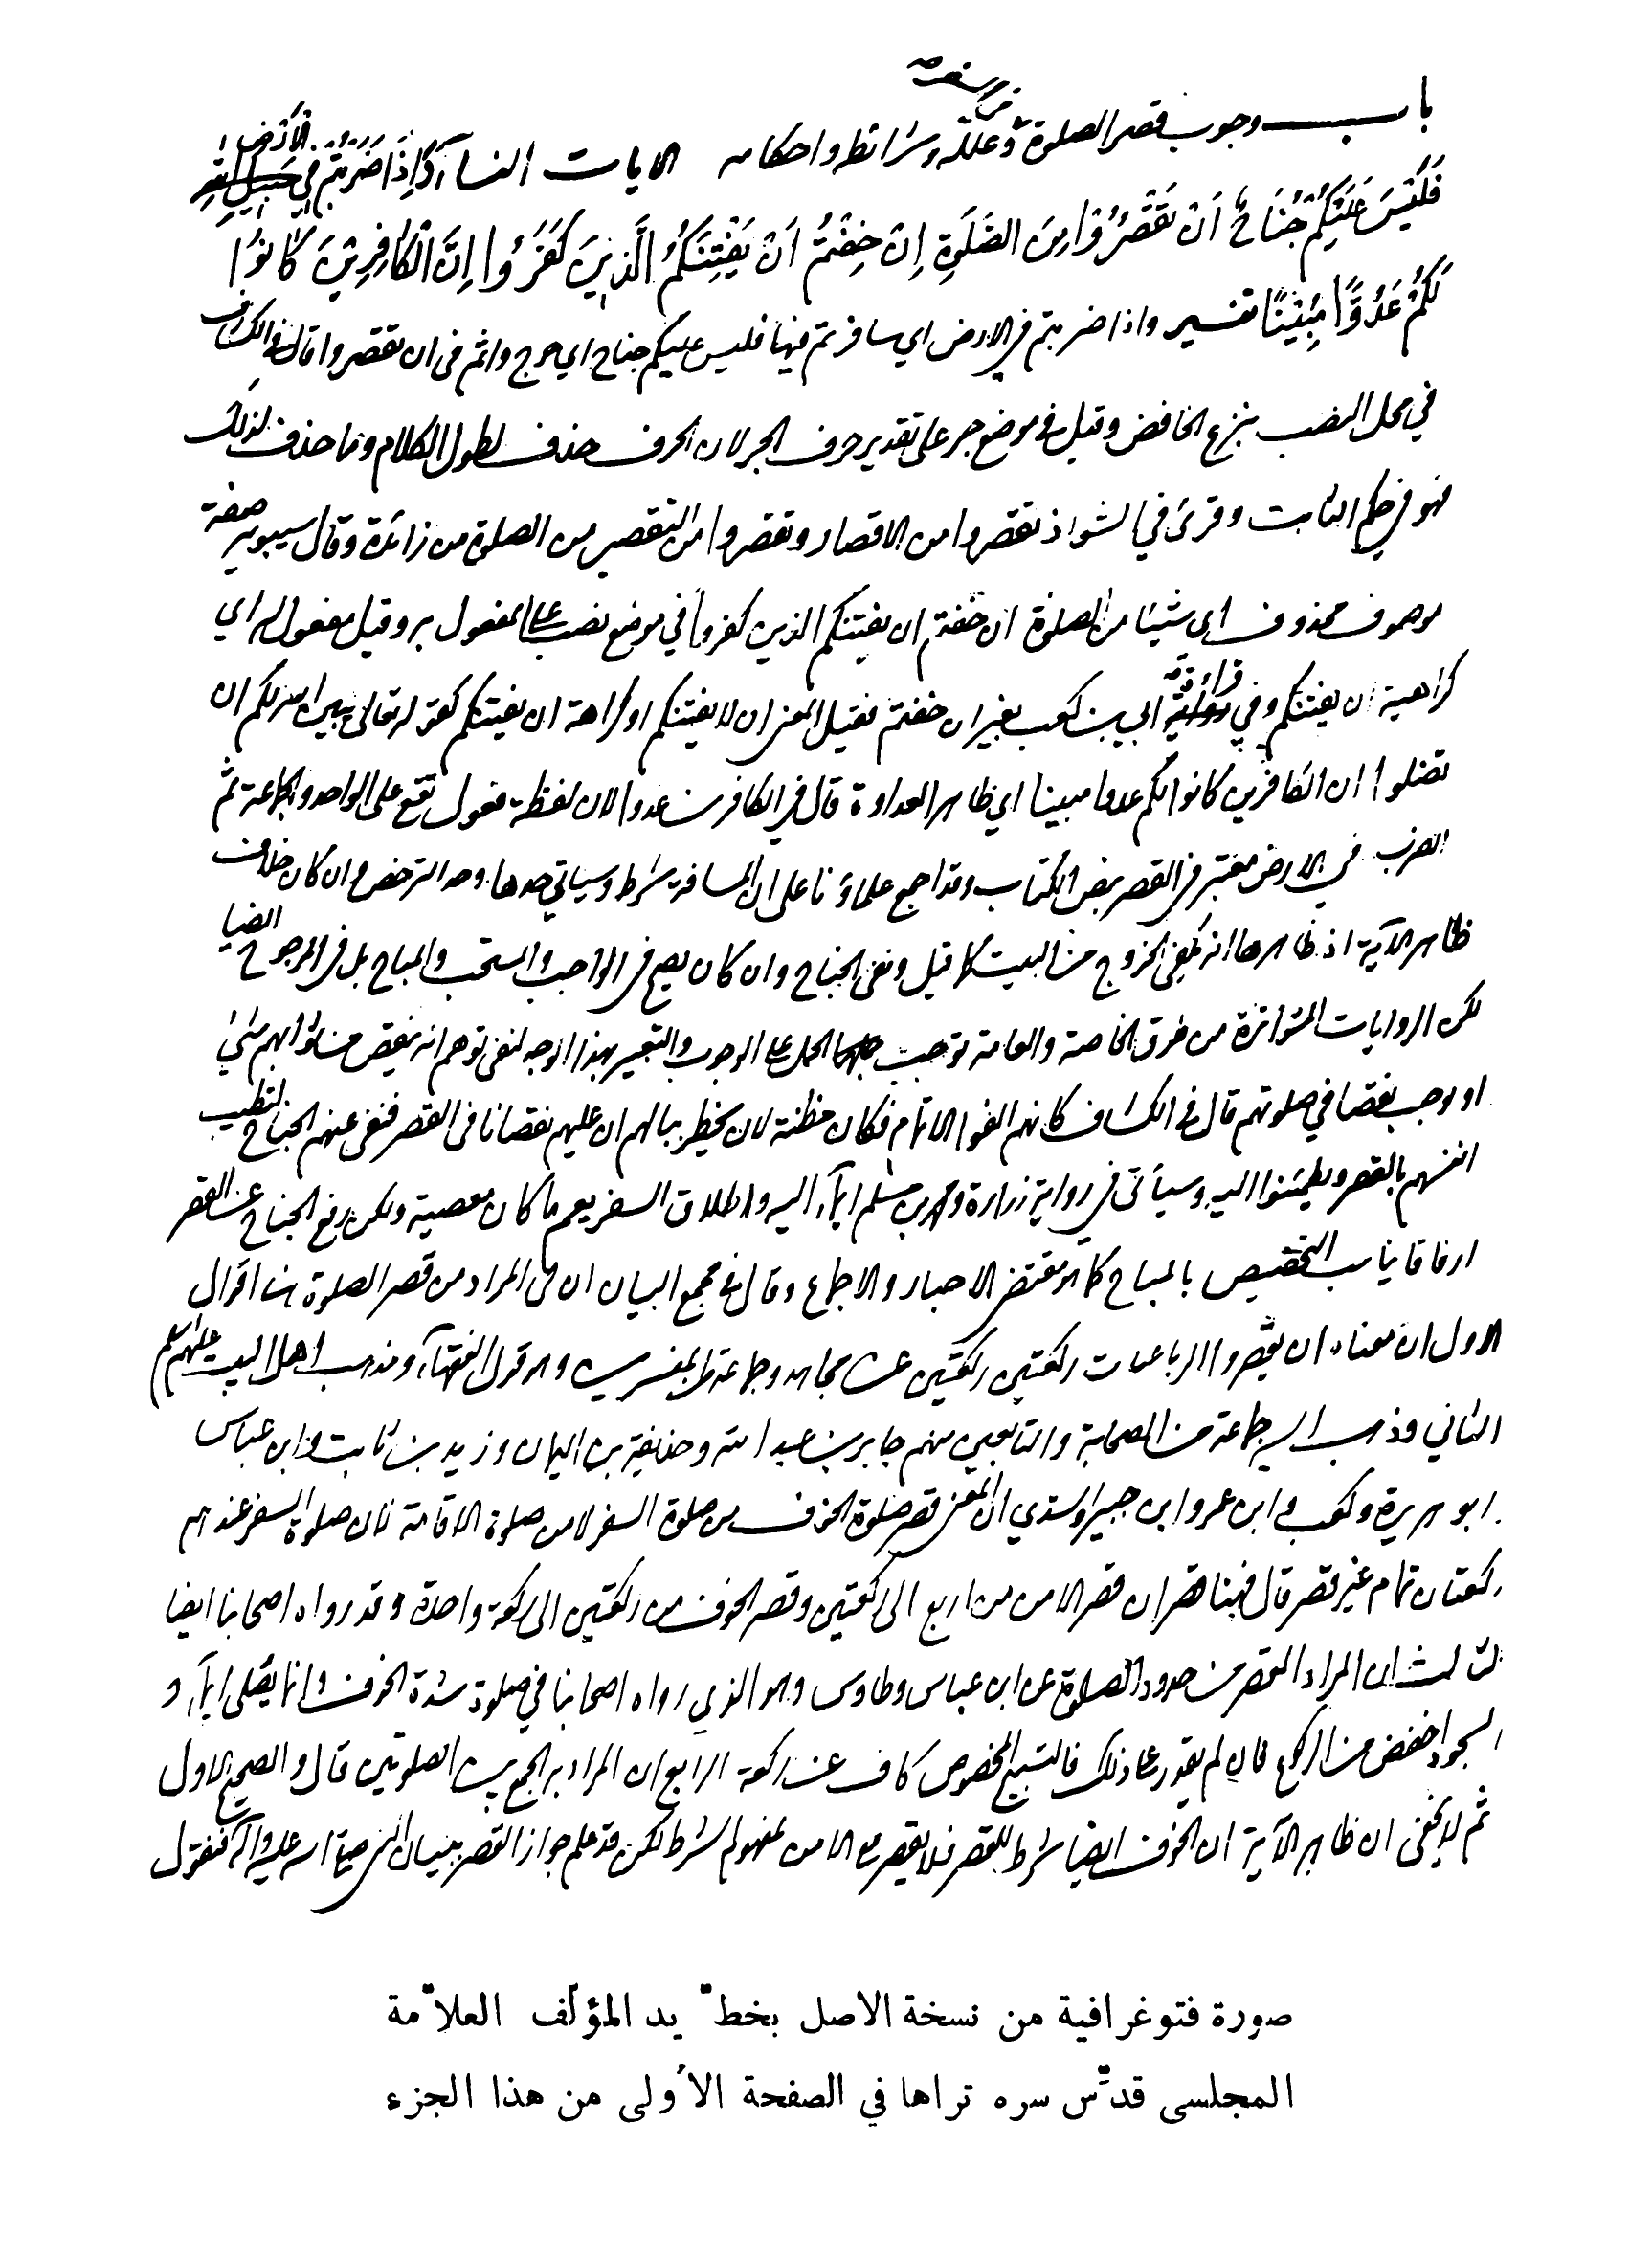 باب وجوب قصر الصلوة في السفر وعلله وشرائطه واحكامه الايات النساء وَاِذَا ضَرَبْتُمْ فِي الْاَرْضِ
فَلَيْسَ عَلَيْكُمْ جُنَاحٌ اَنْ تَقْصُرُوْا مِنَ الصَّلٰوةِ اِنْ خِفْتُمْ اَنْ يَفْتِنَكُمُ الَّذِينَ كَفَرُوا اِنَّ الْكَافِرِيْنَ كَانُوْا
لَكُمْ عَدُوًّا مُبِيْنًا تفسير واذا ضربتم في الارض اي سافرتم فيها فليس عليكم جناح اي حرج واثم في ان تقصروا قال في الكشاف
في محل النصب بنزع الخافض وقيل في موضع جر على تقدير حرف الجر لان الحرف حذف لطول الكلام وما حذف لذلك
فهو في حكم الثابت وقرئ في الشواذ تقصروا من الاقصار وتقصروا من التقصير من الصلوة من زائدة وقال سيبويه صفة
موصوف محذوف اي شيئا من الصلوة ان خفتم ان يفتنكم الذين كفروا في موضع نصب على المفعول به وقيل مفعول له اي
كراهية ان يفتنكم وفي قراءة ابي بن كعب بغير ان خفتم فقيل المعنى ان لا يفتنكم او كراهة ان يفتنكم كقوله تعالى يبين الله لكم ان
تضلوا ان الكافرين كانوا لكم عدوا مبينا اي ظاهر العداوة قال في الكافرين عدوا لان لفظة فعول تقع على الواحد والجماعة ثم
الضرب في الارض معتبر في القصر بنص الكتاب وقد اجمع علماؤنا على ان المسافة شرط وسياتي حدها وحد الترخص وان كان خلاف
ظاهر الآية اذ ظاهرها انه يكفي الخروج من البيت كما قيل ونفي الجناح وان كان يصح في الواجب والمستحب والمباح بل في المرجوح ايضا
لكن الروايات المتواترة من طرق الخاصة والعامة توجب الحمل على الوجوب والتعبير بهذا الوجه لنفي توهم انه ينقص من ثوابهم شئ
او يوجب نقصا في صلوتهم قال في الكشاف كانهم الفوا الاتمام فكان مظنة لان يخطر ببالهم ان عليهم نقصانا في القصر فنفي عنهم الجناح لتطيب
انفسهم بالقصر ويطمئنوا اليه وسيأتي في رواية زرارة ومحمد بن مسلم ايماء اليه واطلاق السفر يعم ما كان معصية ولكن رفع الجناح عن القصر
ارفاقا يناسب التخصيص بالمباح كما هو مقتضى الاخبار والاجماع وقال في مجمع البيان ان في المراد من قصر الصلوة هنا اقوال
الاول ان معناه ان يقصروا الرباعيات ركعتين ركعتين عن مجاهد وجماعة من المفسرين وهو قول الفقهاء ومذهب اهل البيت عليهم السلم
الثاني وذهب اليه جماعة من الصحابة والتابعين منهم جابر بن عبد الله وحذيفة بن اليمان وزيد بن ثابت وابن عباس
ابو هريرة وكعب وابن عمر وابن جبير والسدي ان المعنى قصر صلوة الخوف من صلوة السفر لا من صلوة الاقامة فان صلوة السفر عندهم
ركعتان تمام غير قصر قال فهنا قصران قصر الامن من اربع الى ركعتين وقصر الخوف من ركعتين الى ركعة واحدة وقد رواه اصحابنا ايضا
الثالث ان المراد القصر من حدود الصلوة عن ابن عباس وطاوس وهو الذي رواه اصحابنا في صلوة شدة الخوف وانما يصلى ايماء و
السجود اخفض من الركوع فان لم يقدر على ذلك فالتسبيح المخصوص كاف عن ركعة الرابع ان المراد به الجمع بين الصلوتين قال والصحيح الاول
ثم لا يخفى ان ظاهر الآية ان الخوف ايضا شرط للقصر فلا يقصر مع الامن لمفهوم الشرط لكن قد علم جواز القصر ببيان النبي صلى الله عليه وآله فنقول
صورة فتوغرافية من نسخة الاصل بخطّ يد المؤلّف العلاّمة
المجلسى قدّس سره تراها في الصفحة الأولى من هذا الجزء